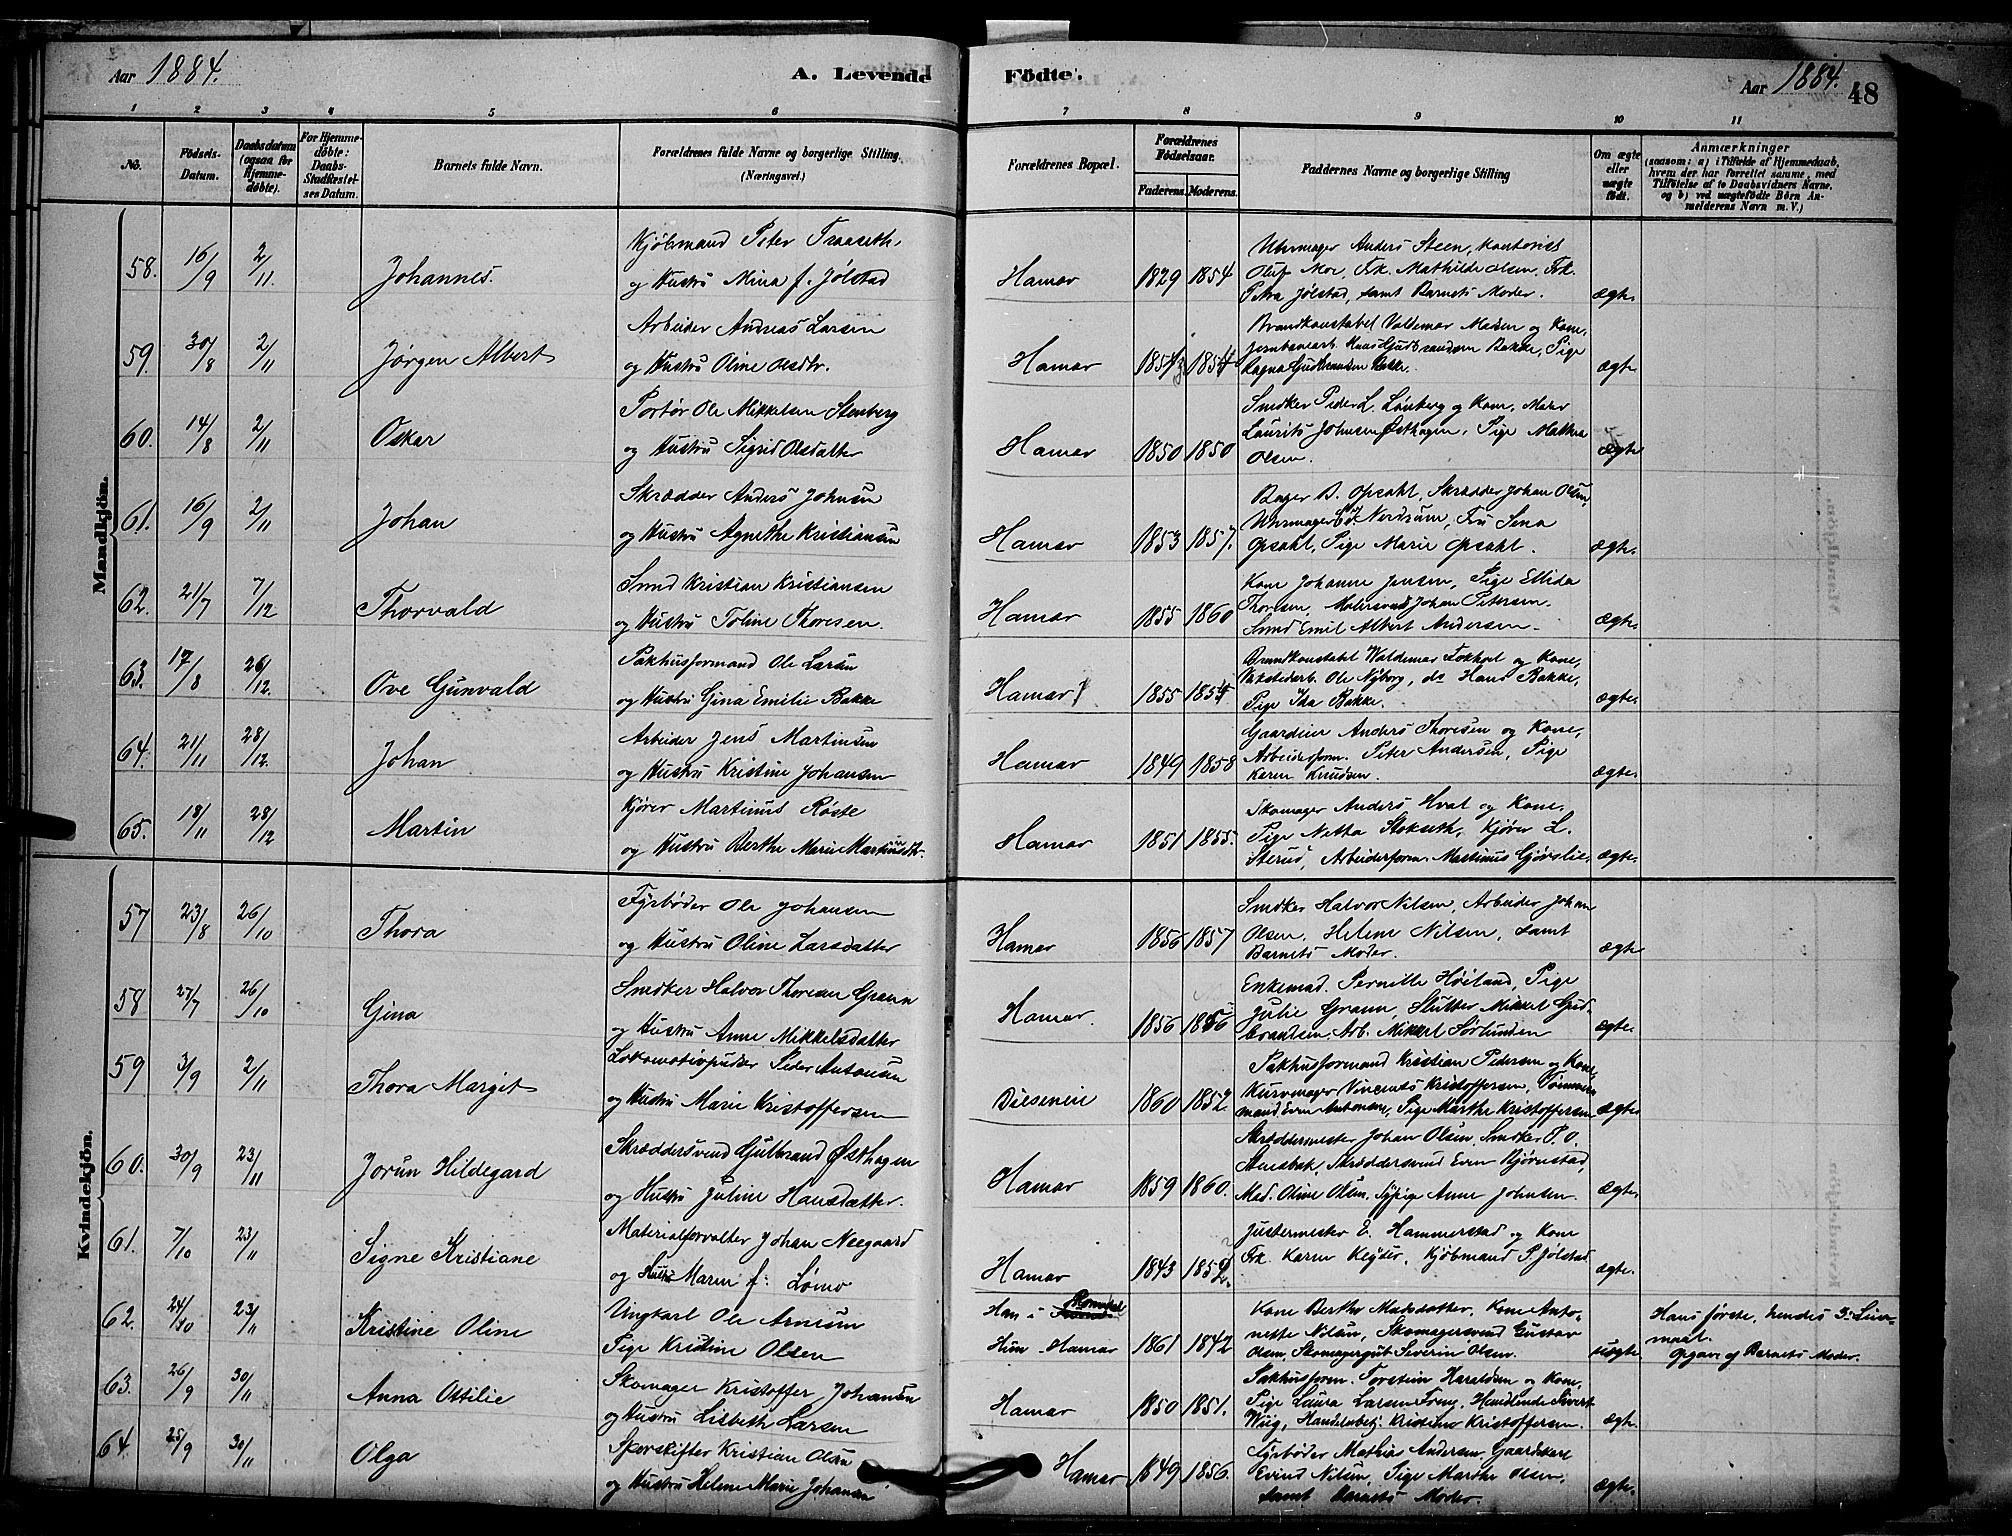 Aar 1884.
A. Levende Födte.
Aar 1884.
48
1 2 3 4 5 6 7 8 9 10 11
No.
Födsels-Datum.
Daabsdatum (ogsaa for Hjemme-döbte).
For Hjemme-döbte: Daabs-Stadfæstel-ses Datum.
Barnets fulde Navn.
Forældrenes fulde Navne og borgerlige Stilling. (Næringsvei.)
Forældrenes Bopæl.
Forældrenes Fødselsaar.
Faderens. Moderens.
Faddernes Navne og borgerlige Stilling
Om ægte eller uægte født.
Anmærkninger
(saasom: a) i Tilfælde af Hjemmedaab, hvem der har forrettet samme, med Tilföielse af to Daabsvidners Navne, og b) ved uægtefødte Börn An-melderens Navn m. V.)
Mandkjön.
58. 16/9 2/11 Johannes.
Kjøbmand Peter Fraaseth
og Hustru Mina f. Jølstad
Hamar 1829 1854
Uhrmager Anders Steen, Kontorist
Oluf Moe, Frk. Mathilde Olsen, Frk.
Petra Jølstad, samt Barnets Moder.
ægte.
59. 30/8 2/11 Jørgen Albert
Arbeider Andreas Larsen
og Hustru Oline Olsdtr.
Hamar 1854 1854
Brandkonstabel Valdemar Madsen og Kone,
Jernbanearb. Hans Gudbrandsen Bakke, Pige
Ragna Gudbrandsen Bakke.
ægte
60. 14/8 2/11 Oskar
Portør Ole Mikkelsen Stenberg
og Hustru Sigrid Olsdatter
Hamar 1850 1850
Snedker Peder L. Lønberg og Kone, Maler
Laurits Johnsen Østhagen, Pige Mathea
Olsen.
ægte
61. 16/9 2/11 Johan
Skrædder Anders Johnsen
og Hustru Agnethe Kristiansen
Hamar 1853 1857.
Bager B. Opsahl, Skrædder Johan Olsen,
Uhrmager Nordrum, Fru Lena
Opsahl, Pige Marie Opsahl.
ægte.
62. 21/7 7/12 Thorvald
Smed Kristian Kristiansen
og Hustru Toline Thoresen.
Hamar 1855 1860
Kone Johanne Jensen, Pige Ellida
Thoresen, Malersvend Johan Petersen.
Smed Emil Albert Andersen.
ægte.
63. 17/8 26/12 Ove Gunvald
Pakhusformand Ole Larsen
og Hustru Gina Emilie Bakke
Hamar 1855 1854
Brandkonstabel Waldemar og Kone,
Ole Nyborg, do Hans Bakke,
Pige Ida Bakke.
ægte.
64. 21/11 28/12 Johan
Arbeider Jens Martinsen
og Hustru Kristine Johansen
Hamar 1849 1858
Gaardeier Anders Thoresen og Kone,
Arbeidsform. Peter Andersen, Pige
Karen Knudsen.
ægte.
65. 18/11 28/12 Martin
Kjører Martinus Røste
og Hustru Berthe Marie Martinusdtr.
Hamar 1851 1855.
Skomager Anders Hval og Kone,
Pige Netta Stokseth, Kjører L.
Sterud, Arbeiderform. Martinus Gjørslie.
ægte.
Kvindekjön.
57 23/8 26/10 Thora
Fyrbøder Ole Johansen
og Hustru Oline Larsdatter
Hamar 1856 1857
Snedker Halvor Nilsen, Arbeider Johan
Olsen, Helene Nilsen, samt
Barnets Moder.
ægte
58 27/7 26/10 Gina
Snedker Halvor Thoresen Grann
og Hustru Anne Mikkelsdatter
Hamar. 1856 1856
Enkemad. Pernille Høiland, Pige
Julie Grann, Slutter Mikkel Gud-
brandsen, Arb. Mikkel Sørlunden
ægte.
59 3/9 2/11 Thora Margit
Lokomotivpudser Peder Antonsen
og Hustru Marie Kristoffersen
Disenein 1860 1852
Pakhusformand Kristian Pedersen og Kone,
Kurvmager Vincents Kristoffersen, Tømmer-
mand Even Antonsen, Pige Marthe Kristoffersen
ægte
60. 30/9 23/11 Jorun Hildegard
Skræddersvend Gulbrand Østhagen
og Hustru Juline Hansdatter.
Hamar 1859 1860.
Skræddermester Johan Olsen, Snedker P. O.
Stensbak, Skræddersvend Even Bjørnstad,
Mad. Oline Olsen, Sypige Anne Johnsen.
ægte.
61. 7/10 23/11 Signe Kristiane
Materialforvalter Johan Neegaard
og Hustru Maren f. Lømo
Hamar 1843 1852.
Justermester E. Hammerstad og Kone
Frk. Karen Keyser, Kjøbmand P. Jølstad
ægte.
62. 24/10 23/11 Kristine Oline
Ungkarl Ole Arnesen
Pige Kristine Olsen
Han i Romedal
Hun Hamar 1861 1842
Kone Berthe Madsdatter, Kone Anto-
nette Nilsen, Skomagersvend Gustav
Olsen, Skomagergut Severin Olsen.
uægte
Hans første, hendes 3. Leier-
maal.
Opgave af Barnets Moder.
63. 26/9 30/11 Anna Ottilie
Skomager Kristoffer Johansen
og Hustru Lisbeth Larsen
Hamar 1850 1851.
Pakhusform. Torstein Haraldsen og Kone,
Pige Laura Larsen Freng, Handlende Sivert
Wiig, Handelsbetj. Kristian Kristoffersen.
ægte
64. 25/9 30/11 Olga
Sporskifter Kristian Olsen
og Hustru Helene Marie Johansen
Hamar 1849 1856.
Fyrbøder Mathias Andersen, Gaardskarl
Evind Nilsen, Pige Marthe Olsen,
samt Barnets Moder.
ægte.